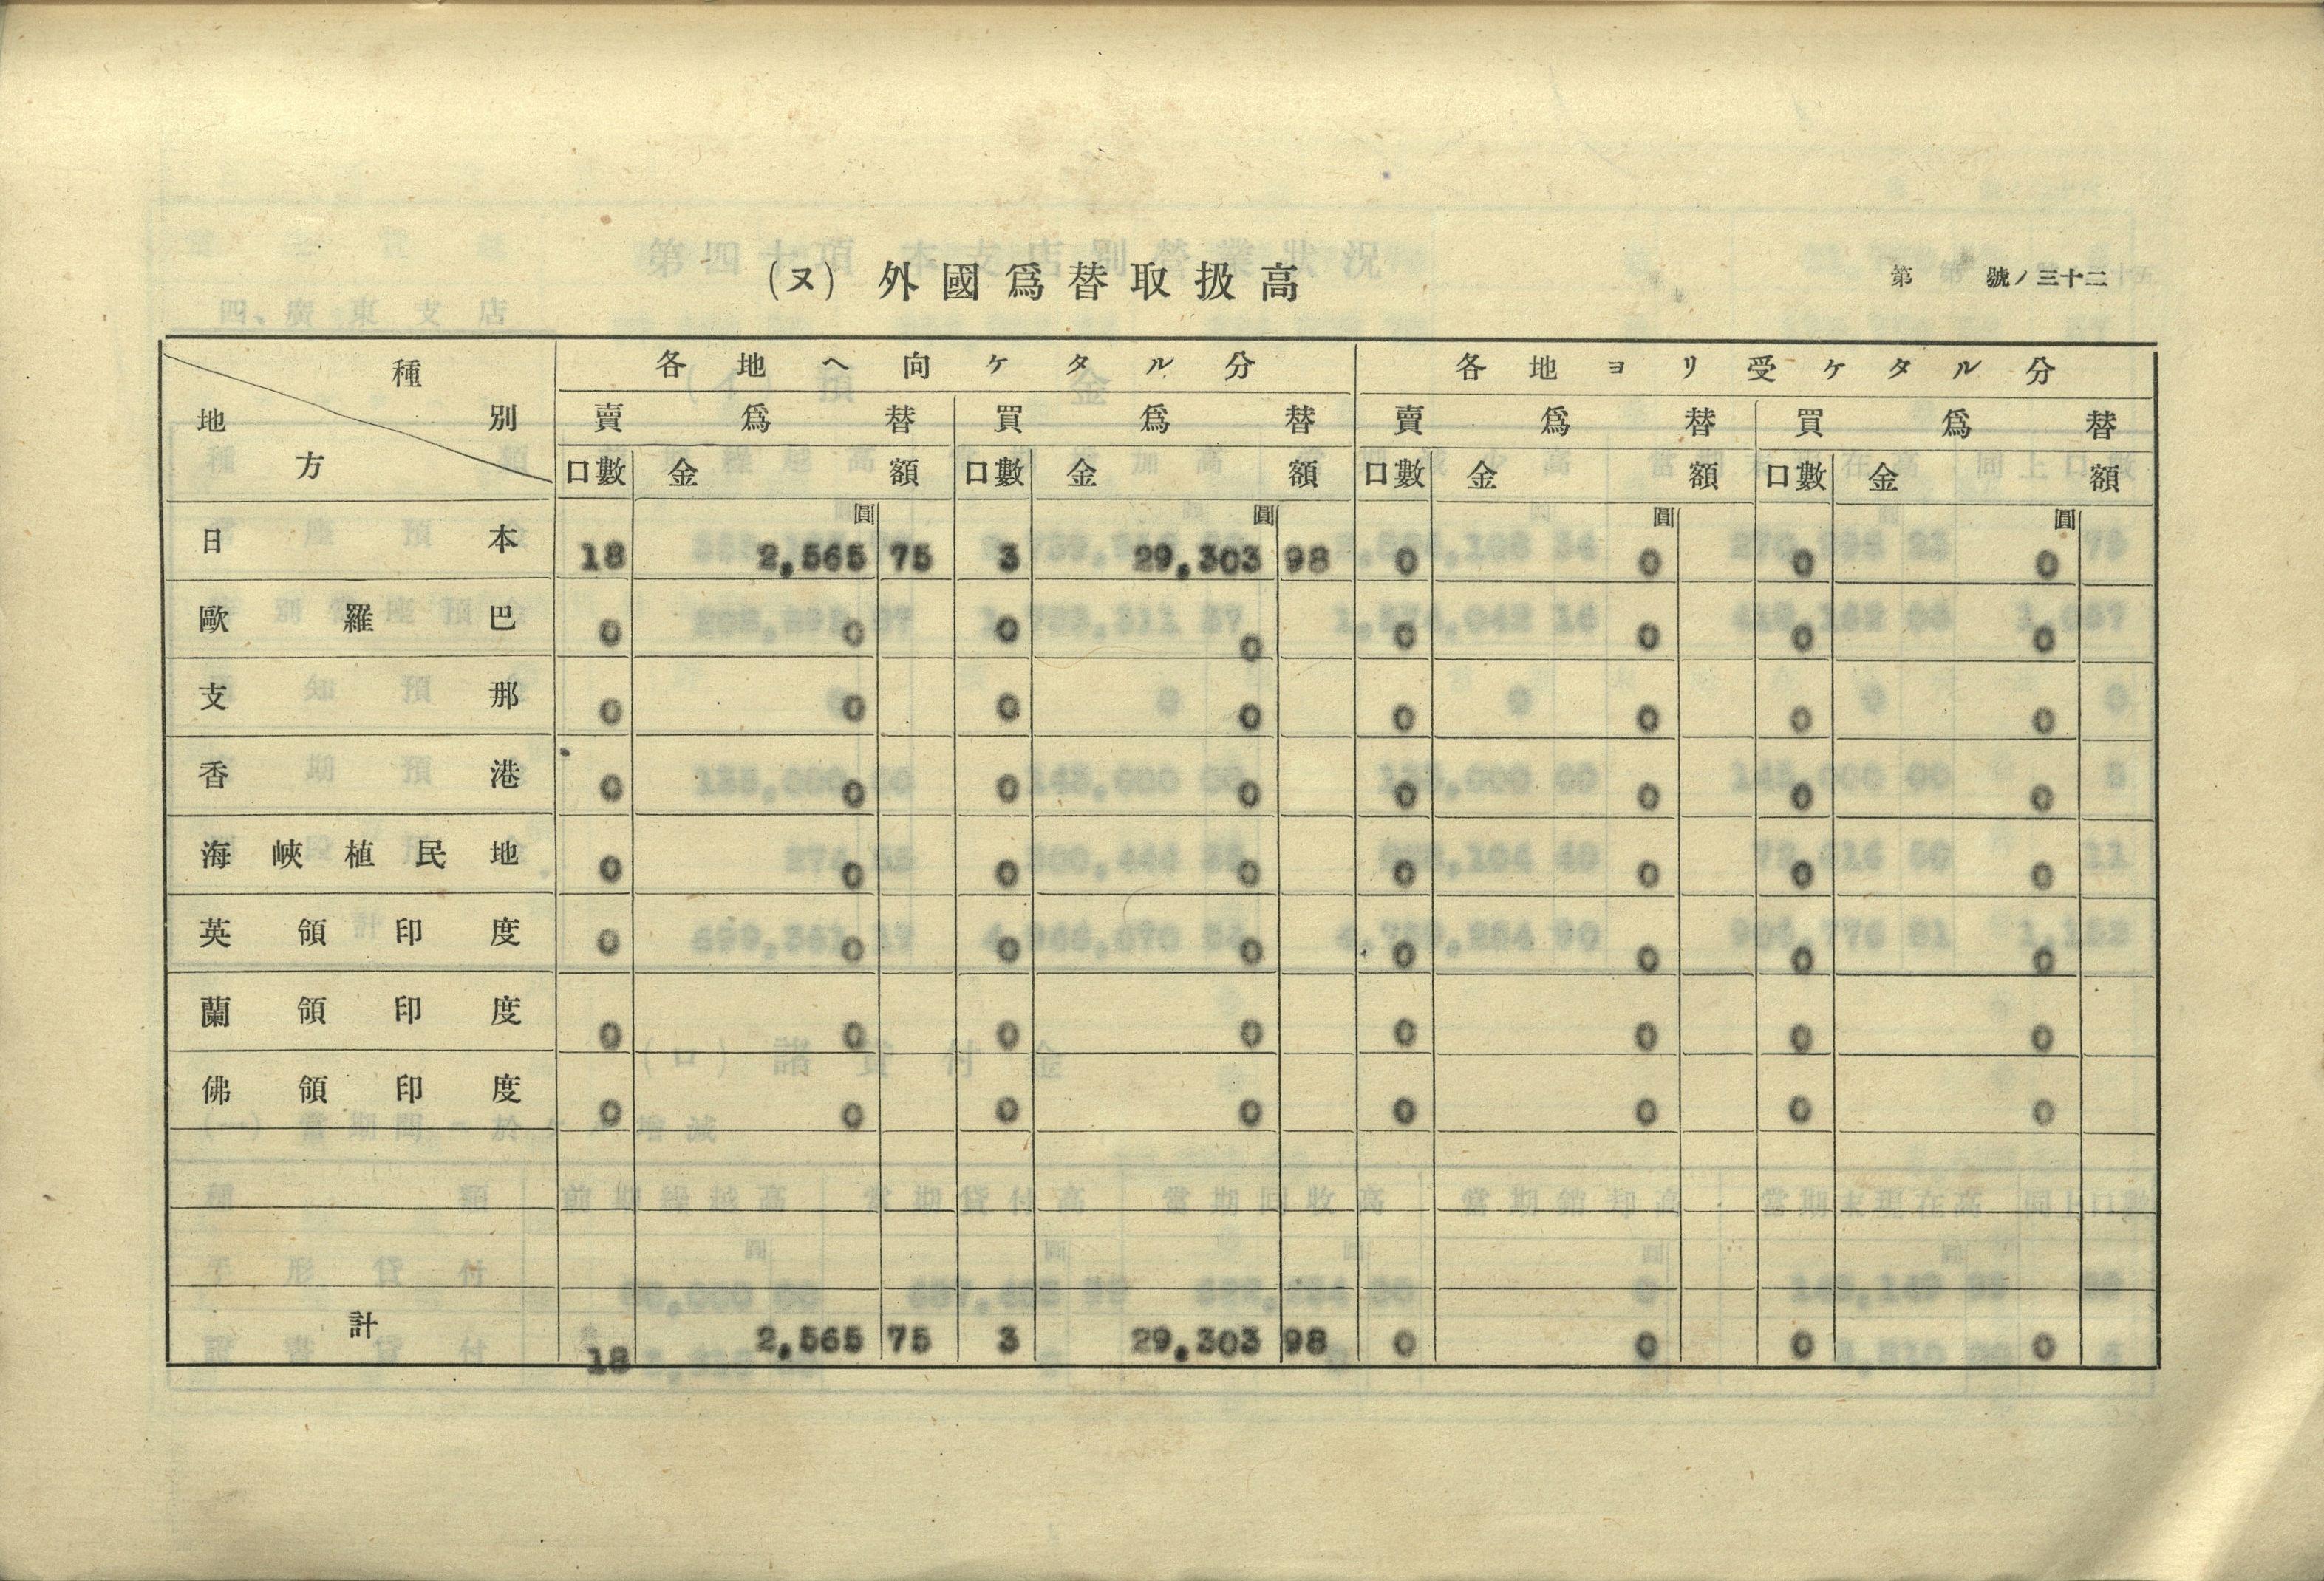 (ヌ) 外國爲替取扱高
第 號ノ三十二
種別 地方 各地ヘ向ケタル分 各地ヨリ受ケタル分
賣爲替 買爲替 賣爲替 買爲替
口數 金額 口數 金額 口數 金額 口數 金額
圓 圓 圓 圓
日本 18 2,565 75 3 29,303 98 0 0 0 0
歐羅巴 0 0 0 0 0 0 0 0
支那 0 0 0 0 0 0 0 0
香港 0 0 0 0 0 0 0 0
海峽植民地 0 0 0 0 0 0 0 0
英領印度 0 0 0 0 0 0 0 0
蘭領印度 0 0 0 0 0 0 0 0
佛領印度 0 0 0 0 0 0 0 0
計 18 2,565 75 3 29,303 98 0 0 0 0